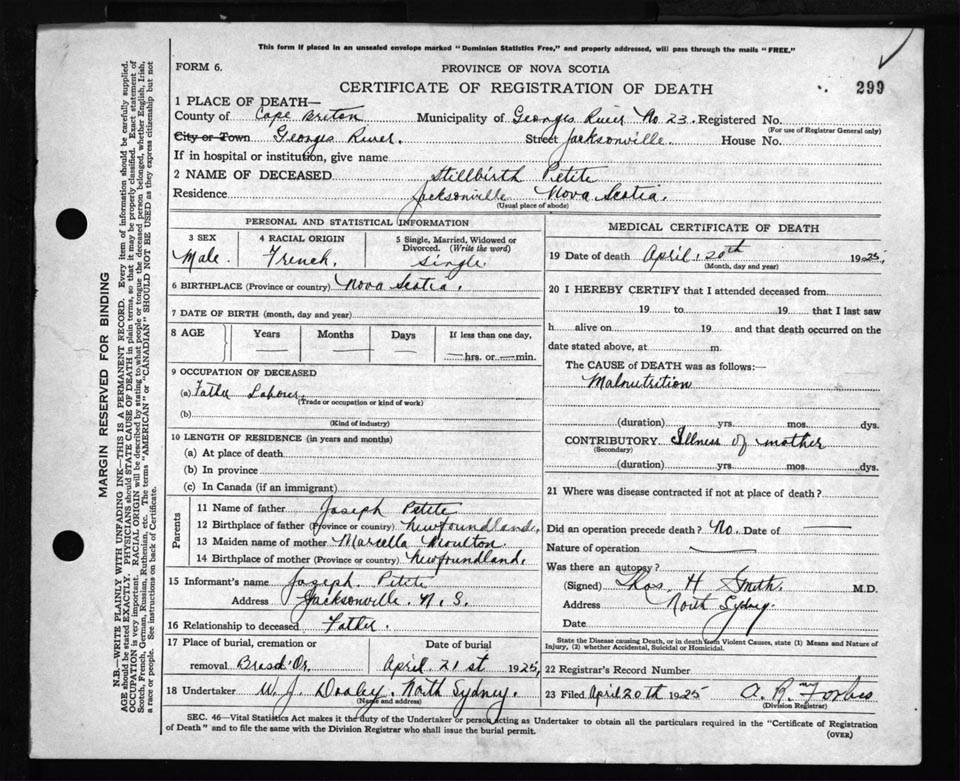 This form if placed in an unsealed envelope marked "Dominion Statistics Free," and properly addressed, will pass through the mails "FREE."
FORM 6.
PROVINCE OF NOVA SCOTIA
CERTIFICATE OF REGISTRATION OF DEATH
299
1 PLACE OF DEATH—
County of Cape Briton Municipality of Georges River No 23. Registered No.
(For use of Registrar General only)
City or Town Georges River. Street Jacksonville. House No.
If in hospital or institution, give name
2 NAME OF DECEASED Stillbirth Petite
Residence Jacksonville Nova Scotia.
(Usual place of abode)
PERSONAL AND STATISTICAL INFORMATION
3 SEX
Male.
4 RACIAL ORIGIN
French.
5 Single, Married, Widowed or
Divorced. (Write the word)
Single
6 BIRTHPLACE (Province or country) Nova Scotia.
7 DATE OF BIRTH (month, day and year)
8 AGE Years Months Days If less than one day,
— — — —hrs. or —min.
9 OCCUPATION OF DECEASED
(a) Father Labourer
(Trade or occupation or kind of work)
(b)
(Kind of industry)
10 LENGTH OF RESIDENCE (in years and months)
(a) At place of death
(b) In province
(c) In Canada (if an immigrant)
Parents
11 Name of father Joseph Petite
12 Birthplace of father (Province or country) Newfoundland.
13 Maiden name of mother Marcella Moulton
14 Birthplace of mother (Province or country) Newfoundland.
15 Informant's name Joseph Petite
Address Jacksonville. N. S.
16 Relationship to deceased Father.
17 Place of burial, cremation or
removal Brasd'Or.
Date of burial
April 21st 1925,
18 Undertaker W. J. Dooley. North Sydney.
(Name and address)
MEDICAL CERTIFICATE OF DEATH
19 Date of death April, 20th 1925,
(Month, day and year)
20 I HEREBY CERTIFY that I attended deceased from
19 to 19 that I last saw
h alive on 19 and that death occurred on the
date stated above, at m
The CAUSE OF DEATH was as follows:
Malnutrition
(duration) yrs. mos. dys.
CONTRIBUTORY. Illness of mother
(Secondary)
(duration) yrs. mos. dys.
21 Where was disease contracted if not at place of death?
Did an operation precede death? No. Date of —
Nature of operation —
Was there an autopsy?
(Signed) Thos. H Smith. M.D.
Address North Sydney.
Date
State the Disease causing Death, or in death from Violent Causes, state (1) Means and Nature of
Injury, (2) whether Accidental, Suicidal or Homicidal.
22 Registrar's Record Number
23 Filed April 20th 1925 A. R. Forbes
(Division Registrar)
SEC. 46—Vital Statistics Act makes it the duty of the Undertaker or person acting as Undertaker to obtain all the particulars required in the "Certificate of Registration
of Death" and to file the same with the Division Registrar who shall issue the burial permit.
(OVER)
MARGIN RESERVED FOR BINDING
N.B.—WRITE PLAINLY WITH UNFADING INK—THIS IS A PERMANENT RECORD. Every item of information should be carefully supplied.
AGE should be stated EXACTLY. PHYSICIANS should STATE CAUSE OF DEATH in plain terms, so that it may be properly classified. Exact statement of
OCCUPATION is very important. RACIAL ORIGIN will be described by stating to what people or tongue the deceased person belonged, whether English, Irish,
Scotch, French, German, Russian, Ruthenian, etc. The terms "AMERICAN" or "CANADIAN" SHOULD NOT BE USED as they express citizenship but not
a race or people. See instructions on back of Certificate.